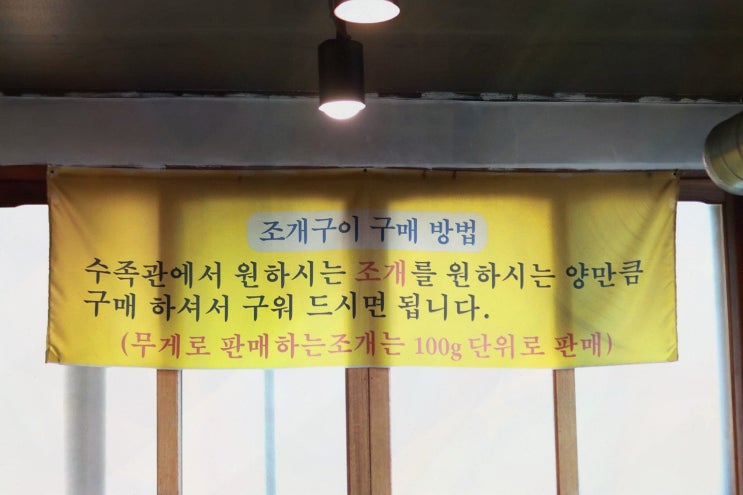 조개구이 구매 방법
수족관에서 원하시는 조개를 원하시는 양만큼
구매 하셔서 구워 드시면 됩니다.
(무게로 판매하는조개는 100g 단위로 판매)